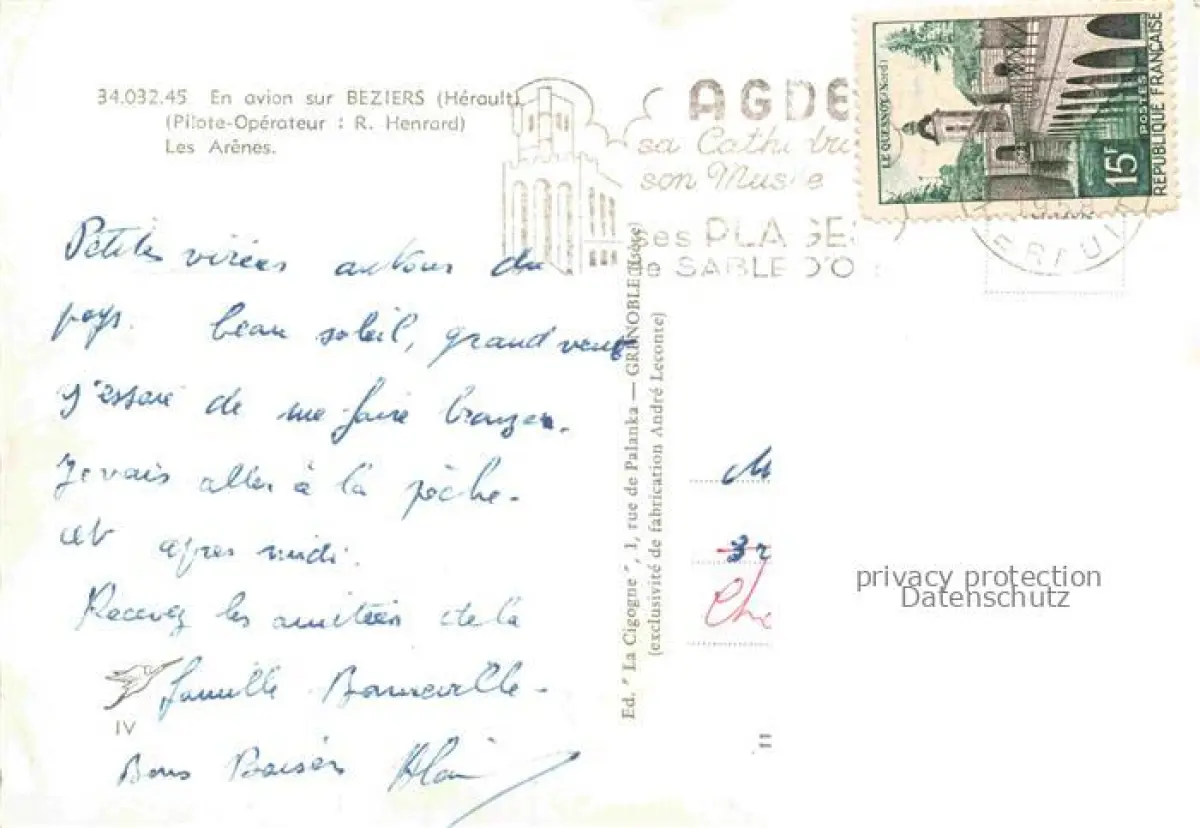 34.032.45 En avion sur BEZIERS (Hérault)
(Pilote-Opérateur : R. Henrard)
Les Arênes.
AGDE
sa Cathédr
son Musée
ses PLAGES
de SABLE D'O
LE QUESNOY (Nord)
15F
POSTES
REPUBLIQUE FRANÇAISE
Petites virées autour du
pays. beau soleil, grand vent
J'essaie de me faire bronzer.
Je vais aller à la pêche.
cet après midi.
Recevez les amitiés de la
famille Bonneville.
Bons Baisers Alain
IV
Ed. "La Cigogne", 1, rue de Palanka — GRENOBLE (Isère)
(exclusivité de fabrication André Leconte)
M
3r
Che
11
privacy protection
Datenschutz